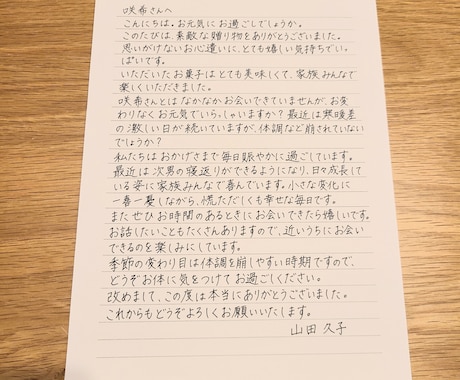 咲希さんへ
こんにちは。お元気にお過ごしでしょうか。
このたびは、素敵な贈り物をありがとうございました。
思いがけないお心遣いに、とても嬉しい気持ちでいっ
ぱいです。
いただいたお菓子はとても美味しくて、家族みんなで
楽しくいただきました。
咲希さんとはなかなかお会いできていませんが、お変
わりなくお元気でいらっしゃいますか？最近は寒暖差
の激しい日が続いていますが、体調など崩されていない
でしょうか？
私たちはおかげさまで毎日賑やかに過ごしています。
最近は次男の寝返りができるようになり、日々成長して
いる姿に家族みんなで喜んでいます。小さな変化に
一喜一憂しながら、慌ただしくも幸せな毎日です。
またぜひお時間のあるときにお会いできたら嬉しいです。
お話したいこともたくさんありますので、近いうちにお会い
できるのを楽しみにしています。
季節の変わり目は体調を崩しやすい時期ですので、
どうぞお体に気をつけてお過ごしください。
改めまして、この度は本当にありがとうございました。
これからもどうぞよろしくお願いいたします。
山田 久子